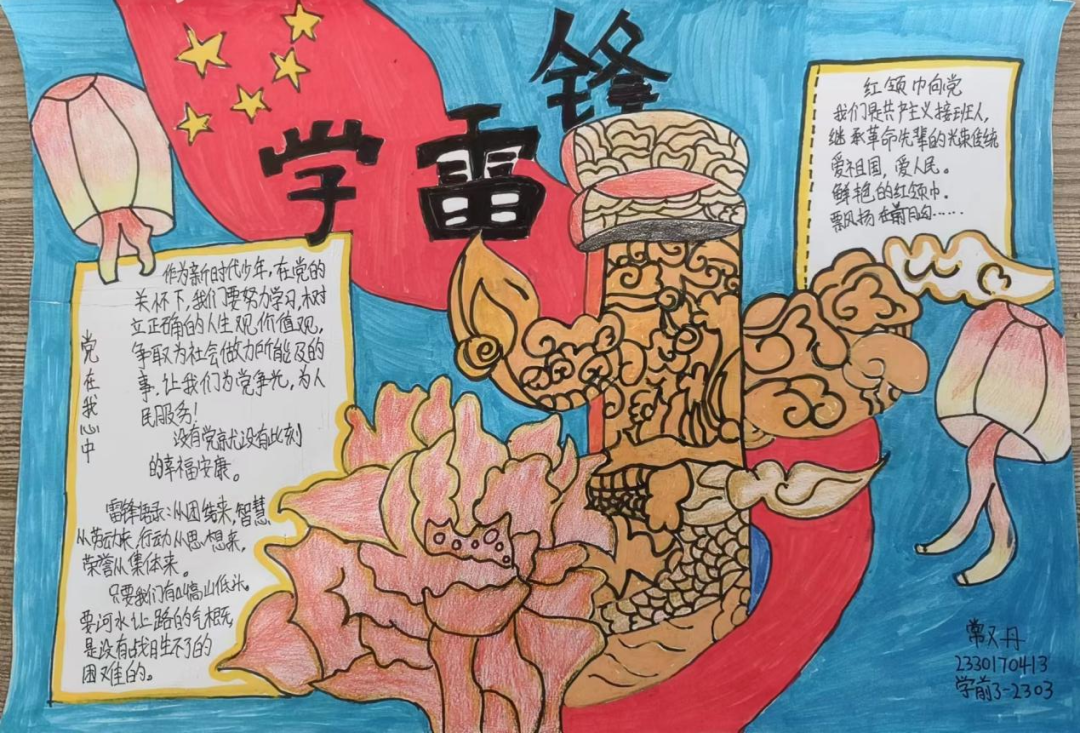 学雷锋
党在我心中
作为新时代少年,在党的
关怀下,我们要努力学习,树
立正确的人生观,价值观,
争取为社会做力所能及的
事,让我们为党争光,为人
民服务!
没有党就没有此刻
的幸福安康。
雷锋语录:从团结来,智慧
从劳动来,行动从思想来,
荣誉从集体来。
只要我们有叫高山低头,
要河水让路的气概,
是没有战胜不了的
困难的。
红领巾向党
我们是共产主义接班人,
继承革命先辈的光荣传统
爱祖国,爱人民。
鲜艳的红领巾.
飘扬在前胸……
常又丹
2330170413
学前3-2303